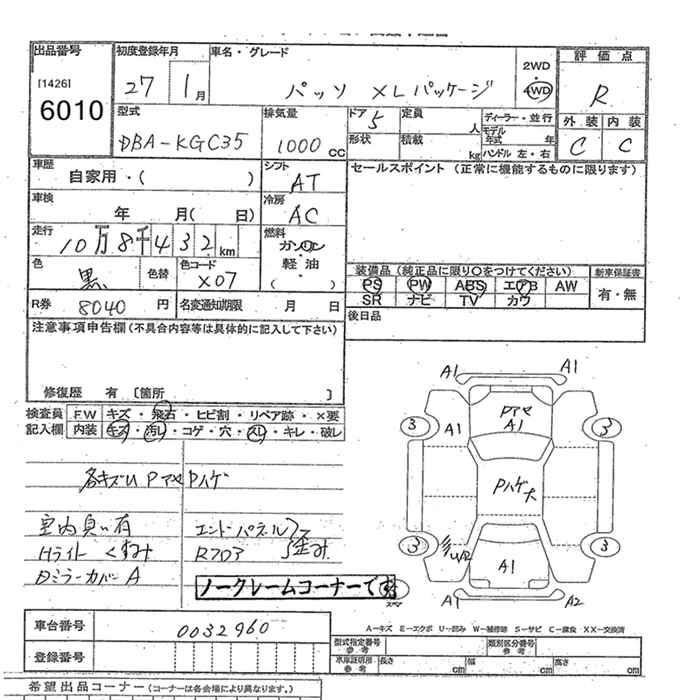 出品番号 初度登録年月 車名・グレード 2WD・4WD 評価点
[1426] 6010 27 1月 パッソ XLパッケージ R
型式 排気量 ドア 5 定員 人 ディーラー・並行 外装 内装
DBA-KGC35 1000cc 形状 積載 kg モデル年式 年 ハンドル 左・右 C C
車歴 シフト セールスポイント (正常に機能するものに限ります)
自家用・( ) AT
車検 冷房
年 月( 日) AC
走行 燃料
10万8千432km ガソリン・軽油
色 色コード 装備品 (純正品に限り〇をつけてください) 新車保証書
黒 色替 X07 ( ) PS PW ABS エアB AW 有・無
SR ナビ TV カワ
R券 8040円 名変通知期限 月 日 後日品
注意事項申告欄(不具合内容等は具体的に記入して下さい)
修復歴 有 〔箇所 〕
検査員 F.W キズ・飛石・ヒビ割・リペア跡・×要
記入欄 内装 キズ・汚れ・コゲ・穴・スレ・キレ・破レ
各キズU Pアセ Pハゲ
室内臭い有 エンドパネル
Hライト くすみ R フロア 歪み
Dミラーカバー A
ノークレームコーナーです
A1 A1
Pアセ A1
A1
3 3
Pハゲ大
3 3
W2
A1
A1 A2
A-キズ E-エクボ U-凹み W-補修跡 S-サビ C-腐食 XX-交換済
車台番号 0032960
登録番号
型式指定番号 参考 類別区分番号 参考
車庫証明用 参考 長さ cm 幅 cm 高さ cm
希望出品コーナー (コーナーは各会場により異なります。)